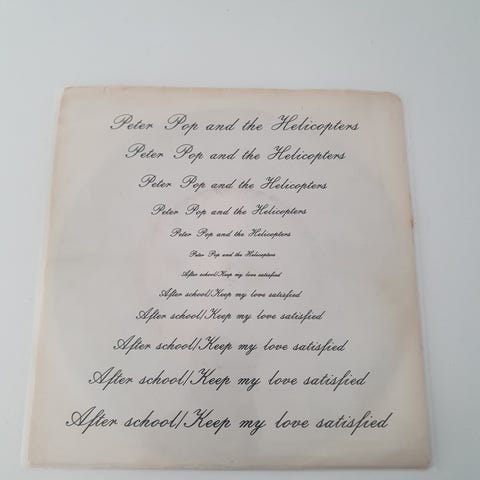 Peter Pop and the Helicopters
Peter Pop and the Helicopters
Peter Pop and the Helicopters
Peter Pop and the Helicopters
Peter Pop and the Helicopters
Peter Pop and the Helicopters
After school/Keep my love satisfied
After school/Keep my love satisfied
After school/Keep my love satisfied
After school/Keep my love satisfied
After school/Keep my love satisfied
After school/Keep my love satisfied